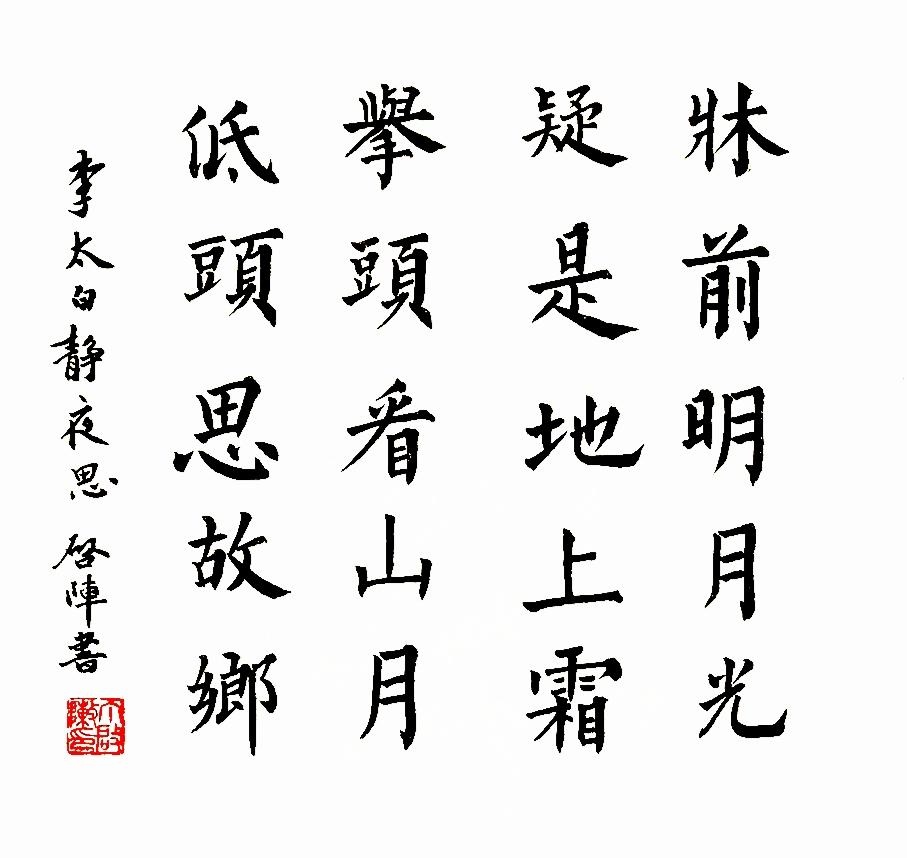 牀前明月光
疑是地上霜
舉頭看山月
低頭思故鄉
李太白靜夜思 啓陣書